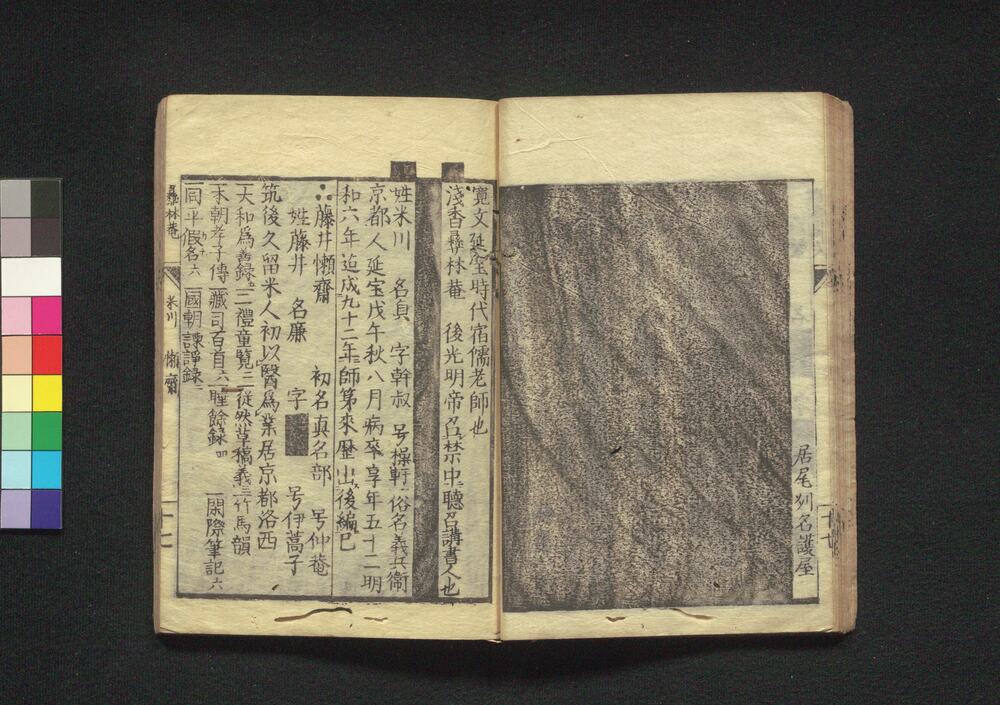 居尾州名護屋
寛文延宝時代宿儒老師也
浅香彝林菴　後光明帝召禁中聴召講書人也
姓米川　名貞　字幹叔　号操軒　俗名義兵衛
京都人延宝戊午秋八月病卒享年五十二明
和六年迄成九十二年師第来歴出後編已
藤井懶齋　初名真名部　号仲菴
姓藤井　名廉　字　号伊蒿子
筑後久留米人初以醫為業居京都洛西
一大和為善録二一禮童覧二一徒然草摘義三一竹馬韻
一本朝孝子傳一藏司百首六一睡餘録四　一閑際筆記六
一同平假名六一國朝諌諍録二
彝林菴
米川
懶齋
十七